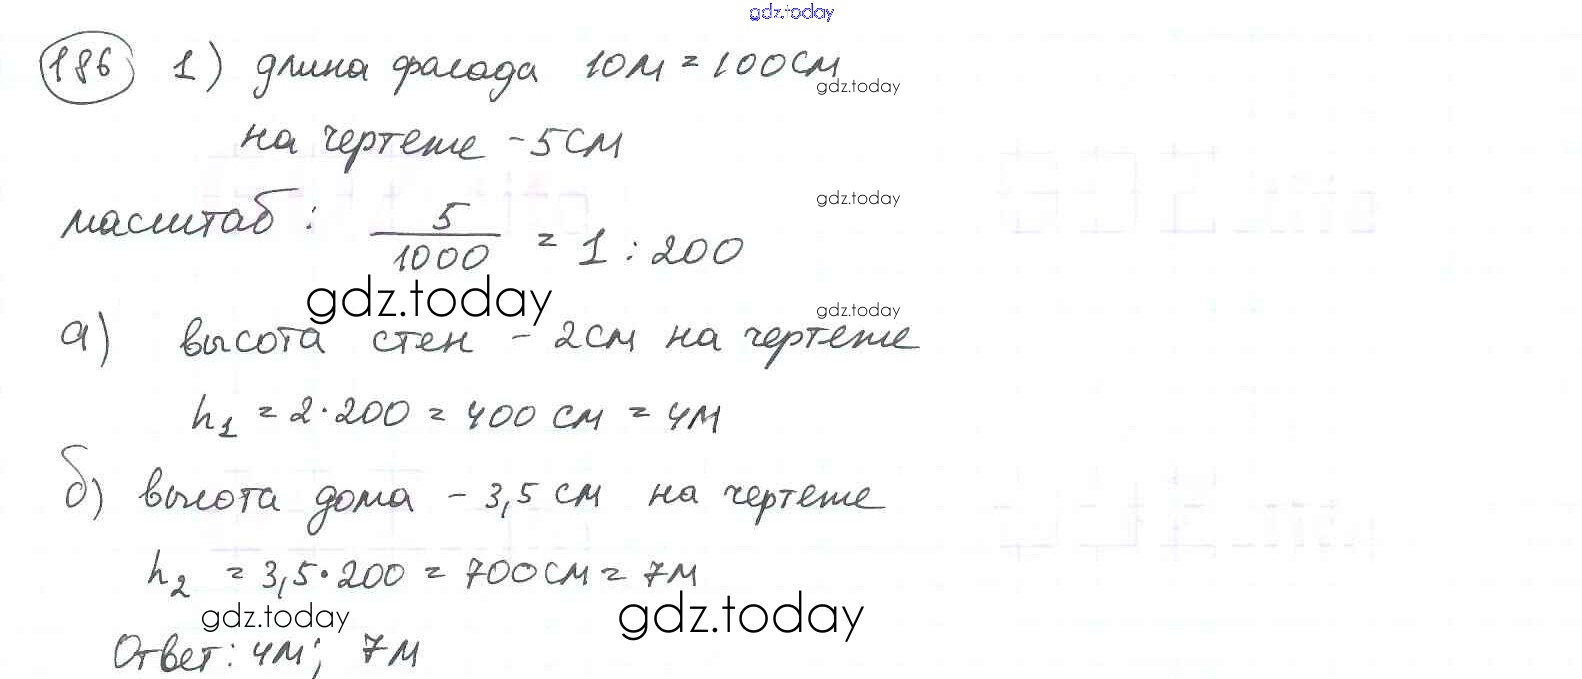 gdz.today
186 1) длина фасада 10м = 100см
gdz.today
на чертеже - 5см
gdz.today
масштаб: 5/1000 = 1 : 200
gdz.today
gdz.today
а) высота стен - 2см на чертеже
h₁ = 2·200 = 400 см = 4м
б) высота дома - 3,5 см на чертеже
h₂ = 3,5·200 = 700см = 7м
gdz.today
gdz.today
Ответ: 4м; 7м